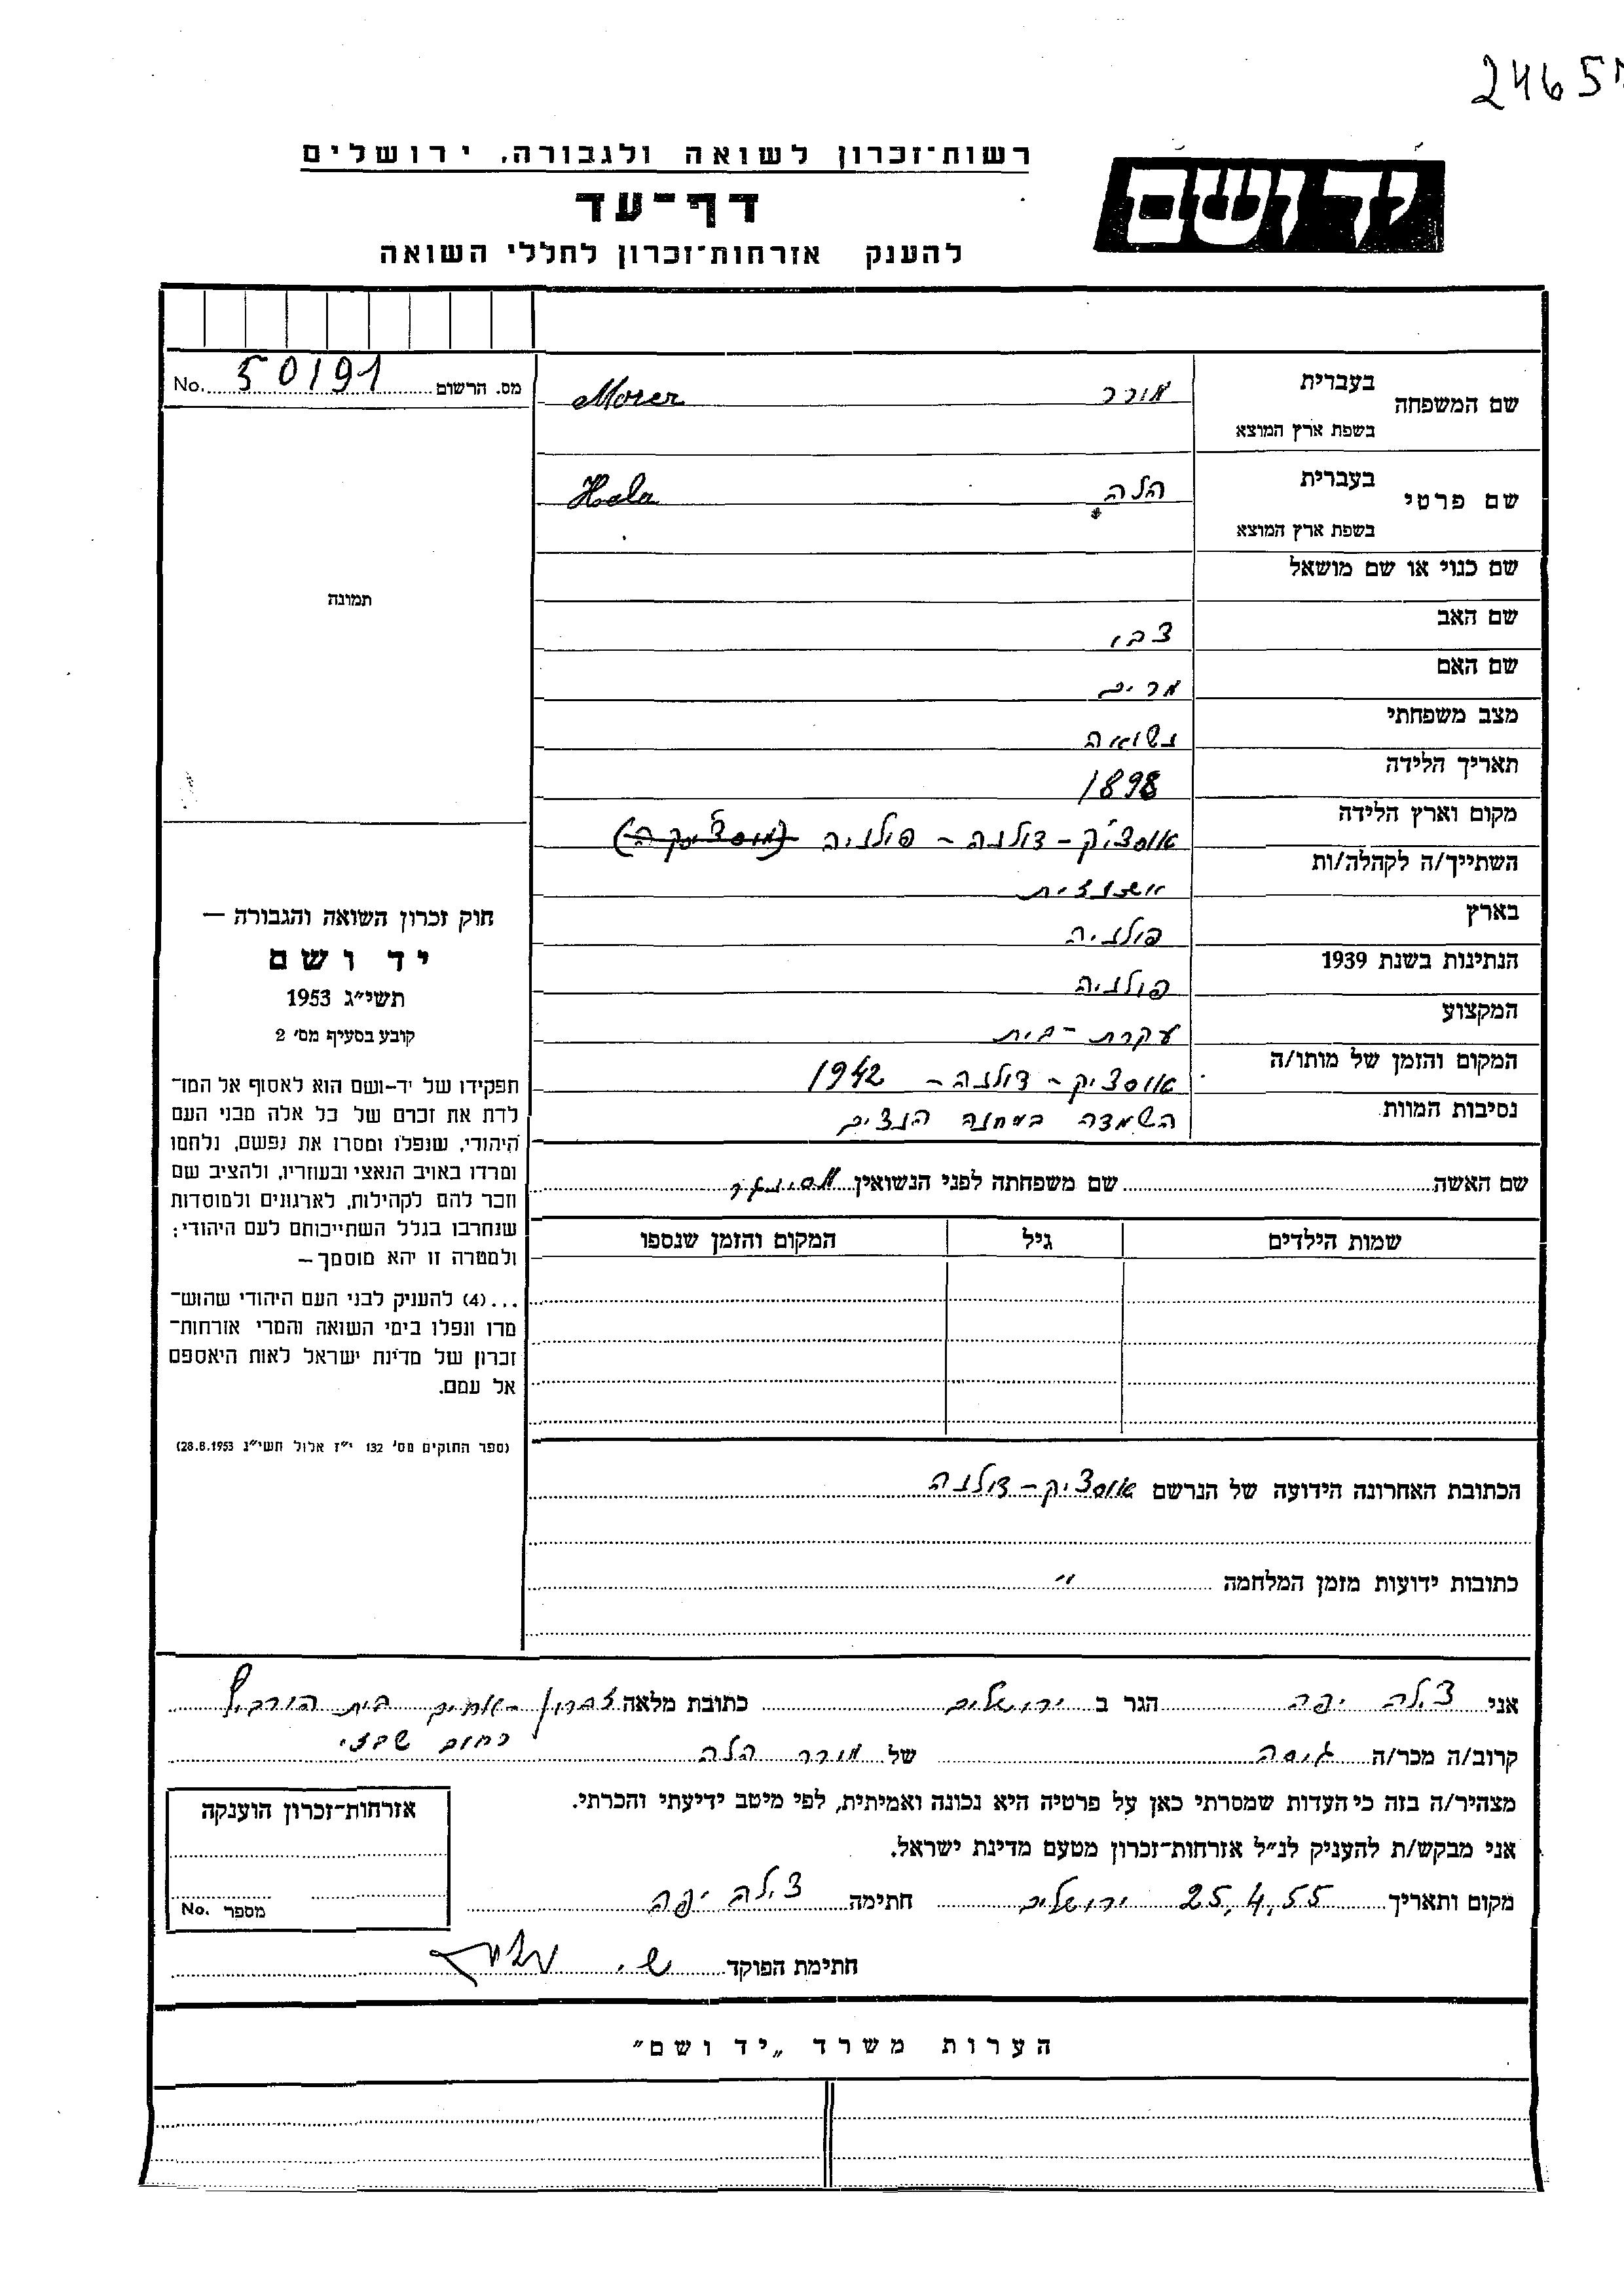 2465
רשות־זכרון לשואה ולגבורה. ירושלים
יד ושם
דף־עד
להענק אזרחות־זכרון לחללי השואה
No. 50191 מס. הרשום
שם המשפחה בעברית מורר Morer
בשפת ארץ המוצא
שם פרטי בעברית הלה Hela
בשפת ארץ המוצא
שם כנוי או שם מושאל
תמונה
שם האב צבי
שם האם מרים
מצב משפחתי נשואה
תאריך הלידה 1898
מקום וארץ הלידה אוסציק - דולנה - פולניה
השתייך/ה לקהלה/ות
בארץ פולניה
הנתינות בשנת 1939 פולניה
המקצוע עקרת-בית
המקום והזמן של מותו/ה אוסציק - דולנה - 1942
נסיבות המוות השמדה במחנה הנצים
חוק זכרון השואה והגבורה —
יד ושם
תשי״ג 1953
קובע בסעיף מס׳ 2
תפקידו של יד-ושם הוא לאסוף אל המו־
לדת את זכרם של כל אלה מבני העם
היהודי, שנפלו ומסרו את נפשם, נלחמו
ומרדו באויב הנאצי ובעוזריו, ולהציב שם
וזכר להם לקהילות, לארגונים ולמוסדות
שנחרבו בגלל השתייכותם לעם היהודי;
ולמטרה זו יהא מוסמך—
...(4) להעניק לבני העם היהודי שהוש־
מדו ונפלו בימי השואה והמרי אזרחות־
זכרון של מדינת ישראל לאות היאספם
אל עמם.
(ספר החוקים מס׳ 132 י״ז אלול תשי״ג 28.8.1953)
שם האשה שם משפחתה לפני הנשואין
שמות הילדים גיל המקום והזמן שנספו
הכתובת האחרונה הידועה של הנרשם אוסציק - דולנה
כתובות ידועות מזמן המלחמה "
אני צילה יפה הגר ב ירושלים כתובת מלאה זכרון - אחים בית הורביץ
רחוב שבזי
קרוב/ה מכר/ה גיסה של מורר הלה
מצהיר/ה בזה כי העדות שמסרתי כאן על פרטיה היא נכונה ואמיתית, לפי מיטב ידיעתי והכרתי.
אני מבקש/ת להעניק לנ״ל אזרחות־זכרון מטעם מדינת ישראל.
אזרחות־זכרון הוענקה
No. מספר
מקום ותאריך ירושלים 25.4.55 חתימה צילה יפה
חתימת הפוקד ש.
הערות משרד „יד ושם״